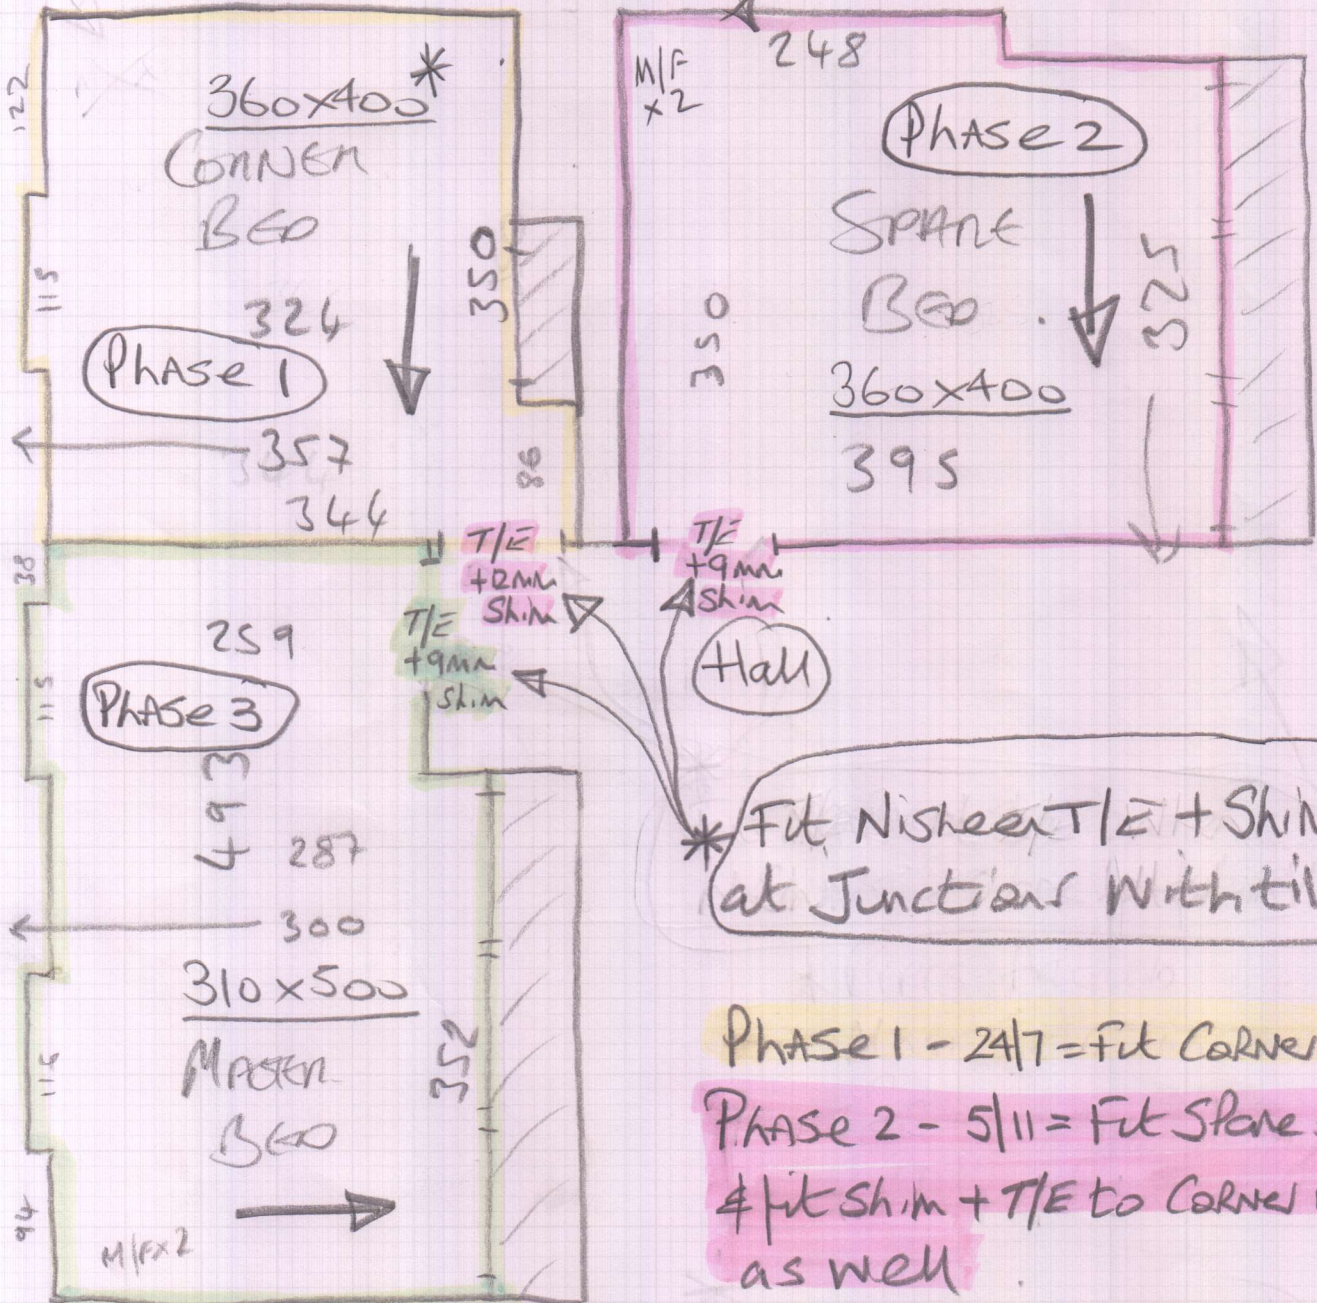 122
360x400*
CORNER
BED
115
324
350
Phase 1
357
344
86
T/E
+12mm
Shim
248
M/F
x2
Phase 2
SPARE
BED
350
325
360x400
395
T/E
+9mm
Shim
Hall
38
259
T/E
+9mm
Shim
115
Phase 3
493
287
300
310x500
MASTER
BED
352
116
94
M/Fx2
* Fit Nisheen T/E + Shim
at Junctions With til
Phase 1 - 24/7 = Fit Corner
Phase 2 - 5/11 = Fit Spare
& fit Shim + T/E to Corner
as well